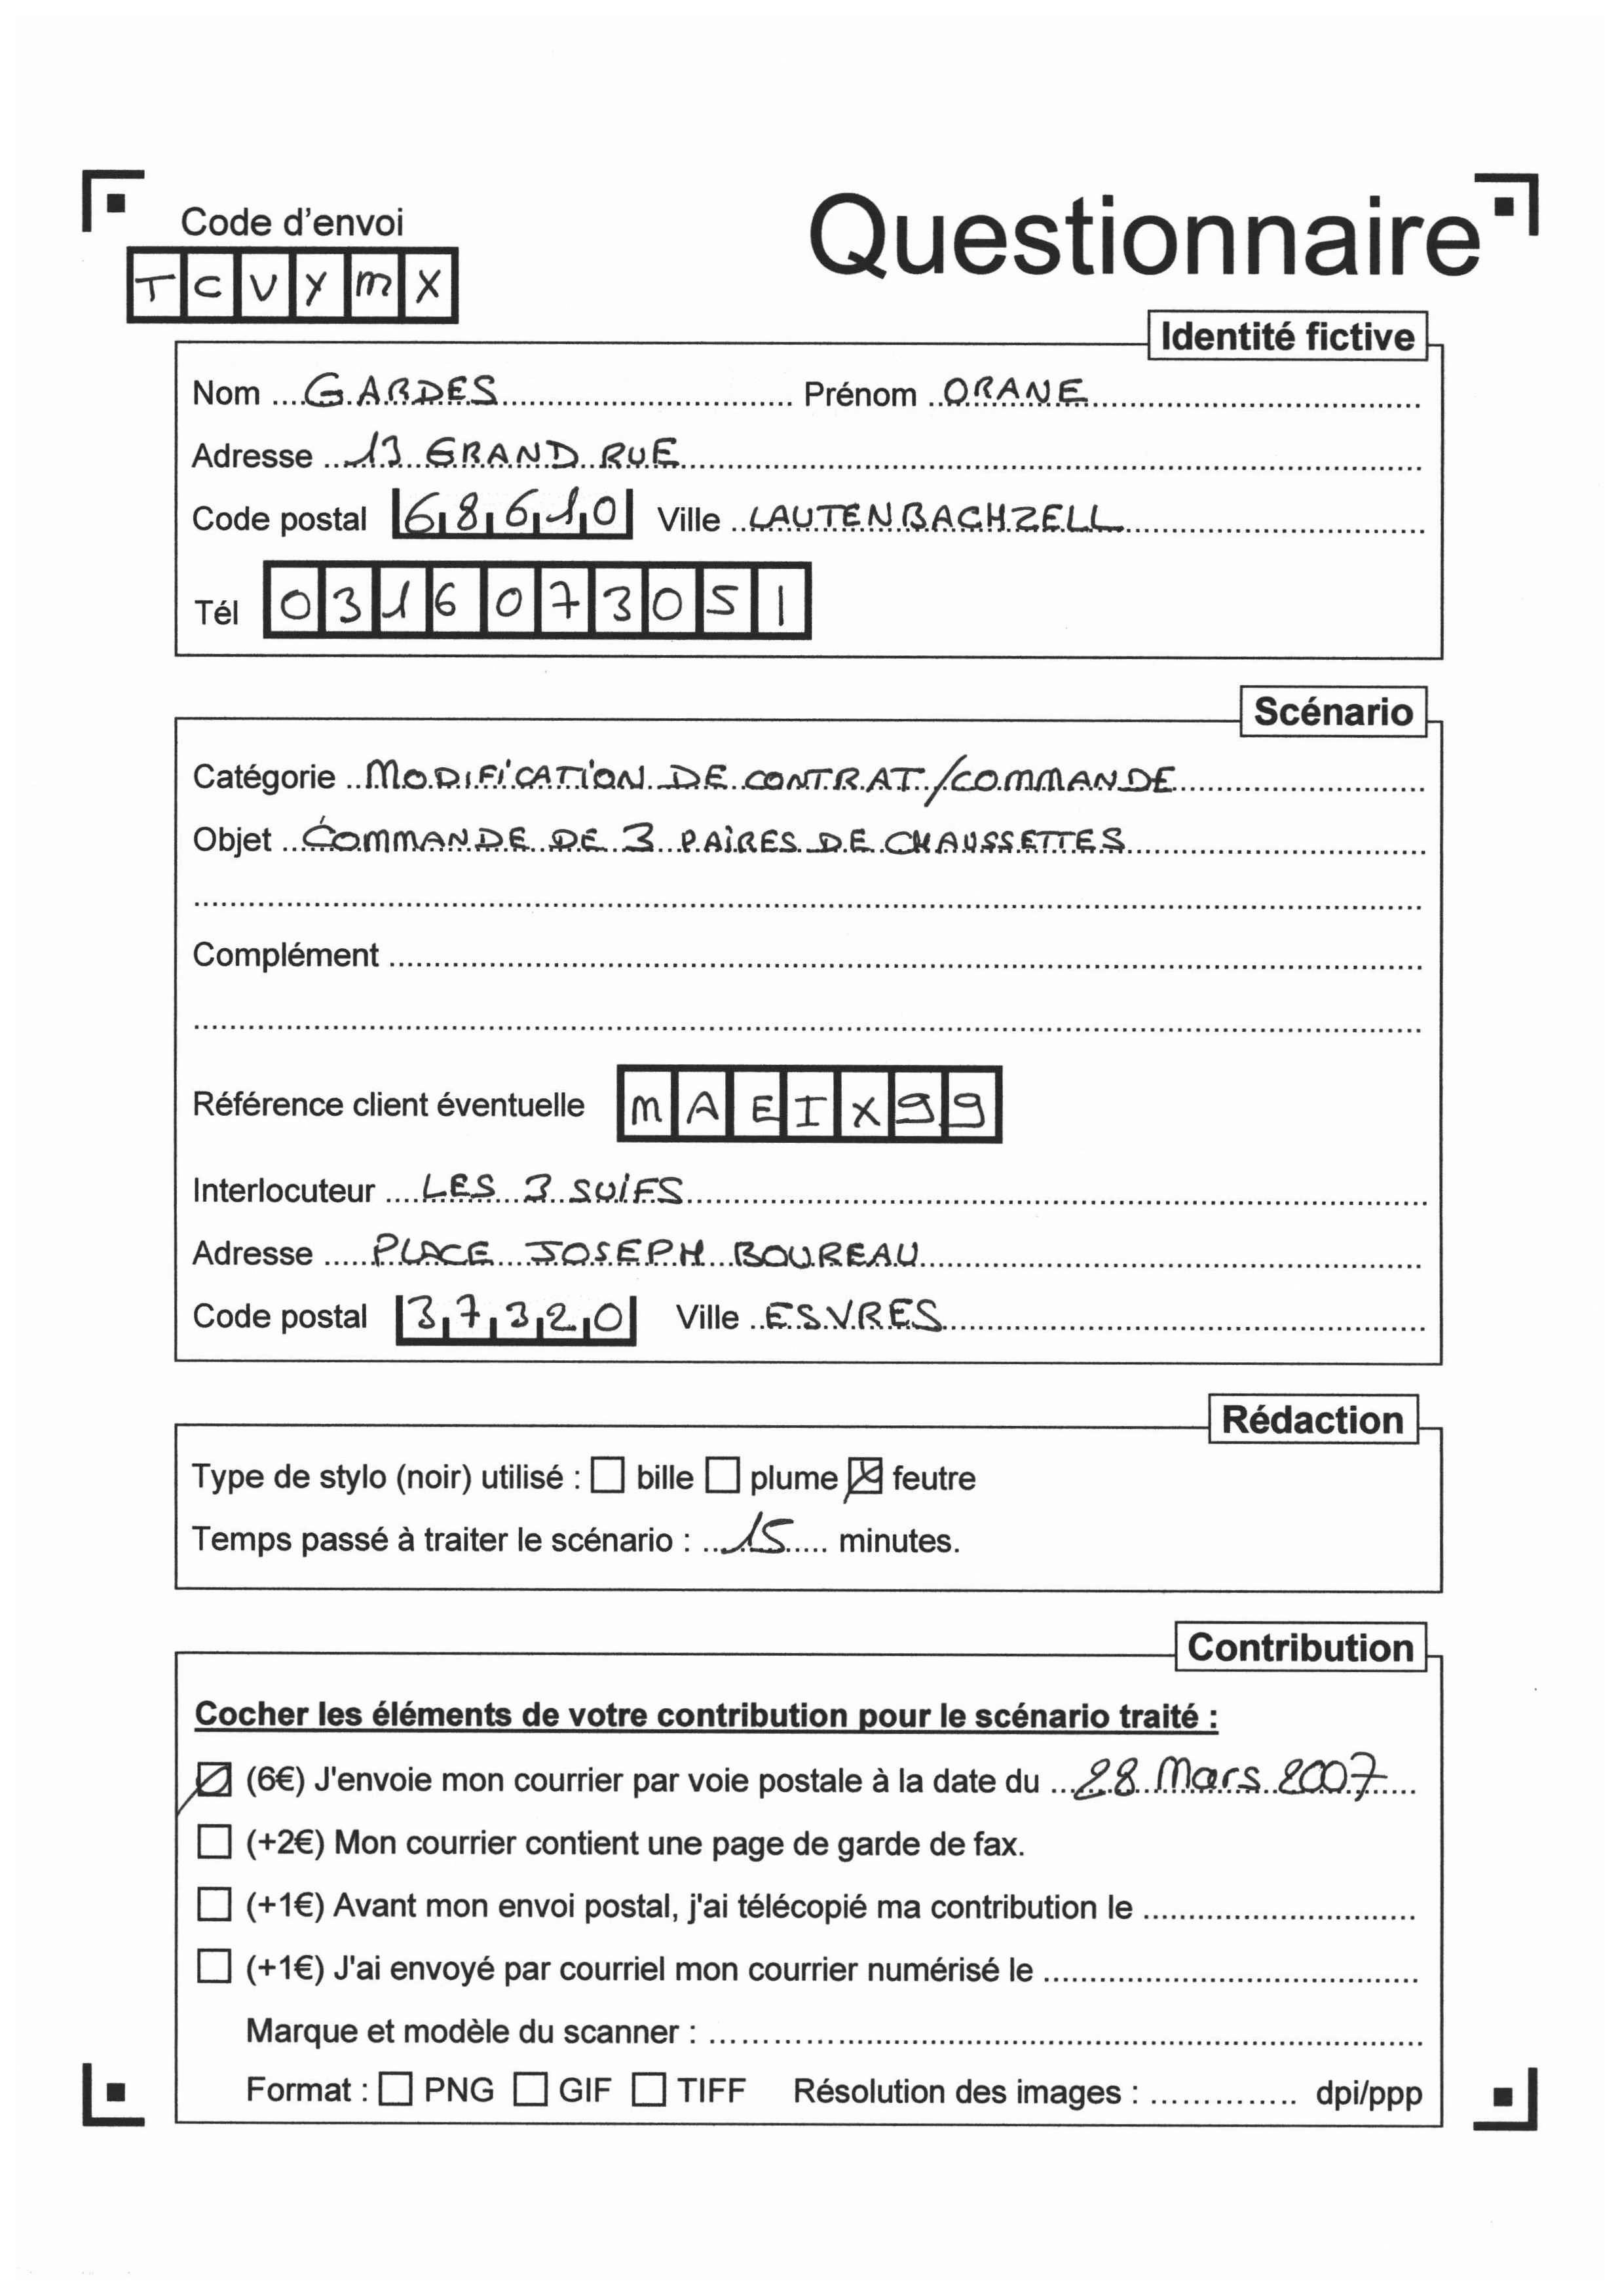 Questionnaire
Code d'envoi
TCVYMX
Identité fictive
Nom GARDES Prénom ORANE
Adresse 13 GRAND RUE
Code postal 68610 Ville LAUTENBACHZELL
Tél 0316073051
Scénario
Catégorie MODIFICATION DE CONTRAT/COMMANDE
Objet COMMANDE DE 3 PAIRES DE CHAUSSETTES
Complément
Référence client éventuelle MAEIX99
Interlocuteur LES 3 SUIFS
Adresse PLACE JOSEPH BOUREAU
Code postal 37320 Ville ESVRES
Rédaction
Type de stylo (noir) utilisé : bille plume feutre
Temps passé à traiter le scénario : 15 minutes.
Contribution
Cocher les éléments de votre contribution pour le scénario traité :
(6€) J'envoie mon courrier par voie postale à la date du 28 Mars 2007
(+2€) Mon courrier contient une page de garde de fax.
(+1€) Avant mon envoi postal, j'ai télécopié ma contribution le
(+1€) J'ai envoyé par courriel mon courrier numérisé le
Marque et modèle du scanner :
Format : PNG GIF TIFF Résolution des images : dpi/ppp